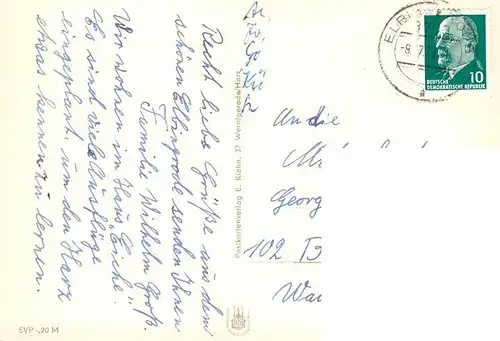 Recht liebe Grüße aus dem
schönen Elbingrode senden Ihnen
Familie Wilhelm Groß.
Wir wohnen im Haus "Eiche".
Es sind viel Ausflüge
eingeplant, um den Harz
etwas kennen zu lernen.
EVP -,20 M
Postkartenverlag E. Riehn, 37 Wernigerode/Harz
DEUTSCHE
DEMOKRATISCHE REPUBLIK
10
An die
Georg
102